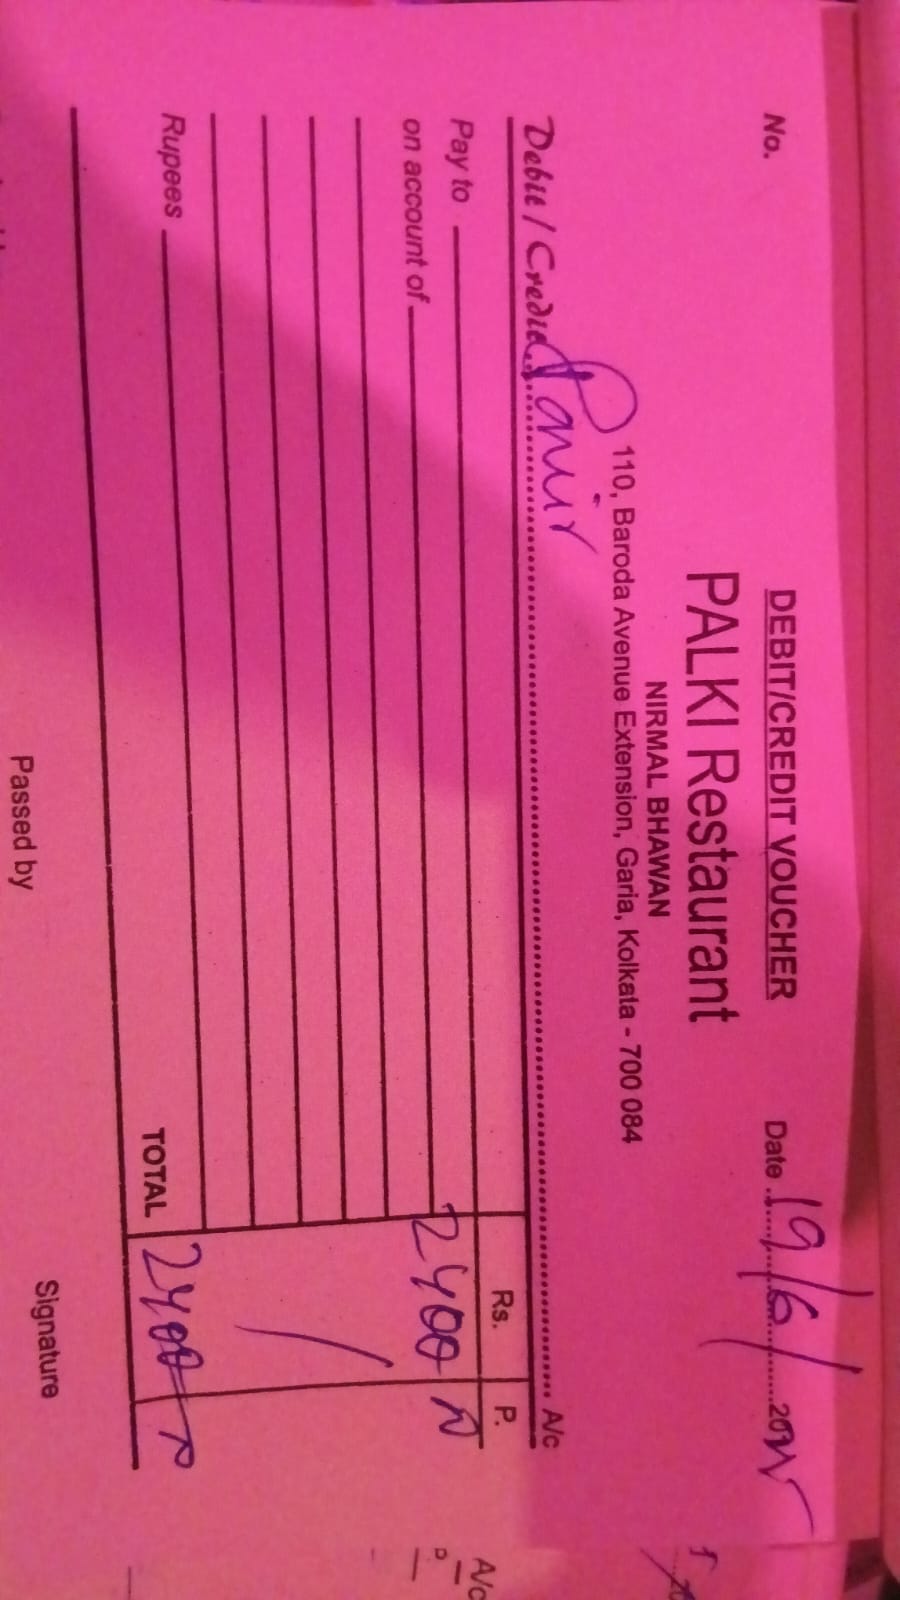 DEBIT/CREDIT VOUCHER
No.
Date 19/6/20
PALKI Restaurant
NIRMAL BHAWAN
110, Baroda Avenue Extension, Garia, Kolkata - 700 084
Debit / Credit Panir A/c
Rs. P.
Pay to
on account of 2400
Rupees
TOTAL 2400
Passed by
Signature
A/c